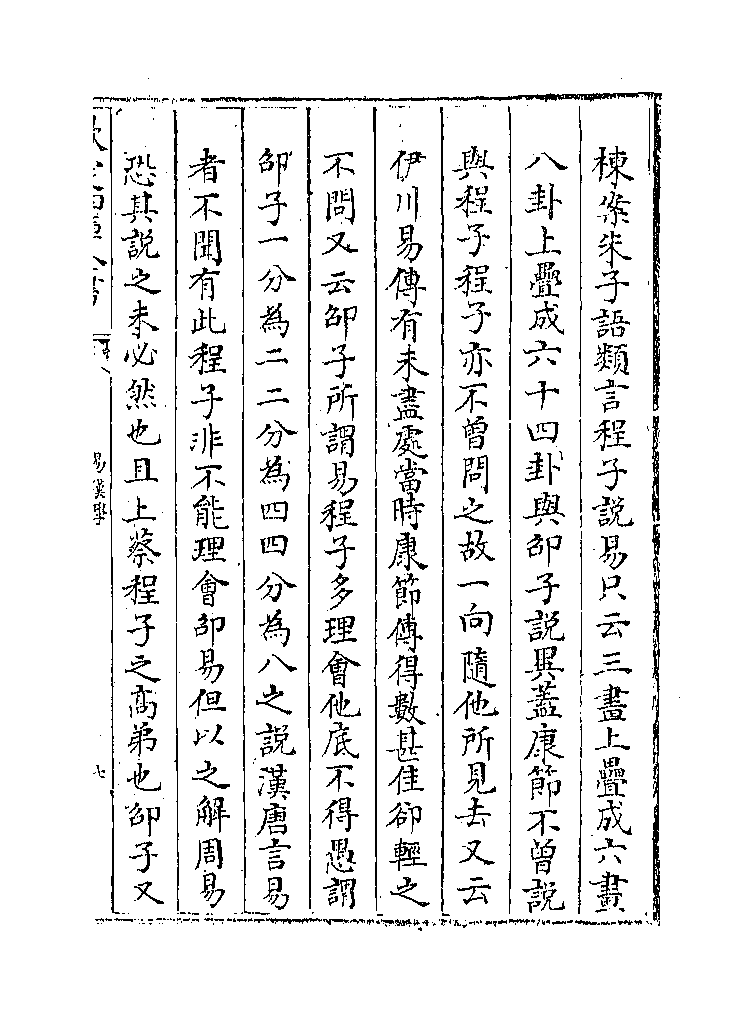 棟案朱子語類言程子說易只云三畫上疊成六畫
八卦上疊成六十四卦與邵子說異蓋康節不曾說
與程子程子亦不曾問之故一向隨他所見去又云
伊川易傳有未盡處當時康節傳得數甚佳卻輕之
不問又云邵子所謂易程子多理會他底不得愚謂
邵子一分為二二分為四四分為八之說漢唐言易
者不聞有此程子非不能理會邵易但以之解周易
恐其說之未必然也且上蔡程子之高弟也邵子又
易漢學
七